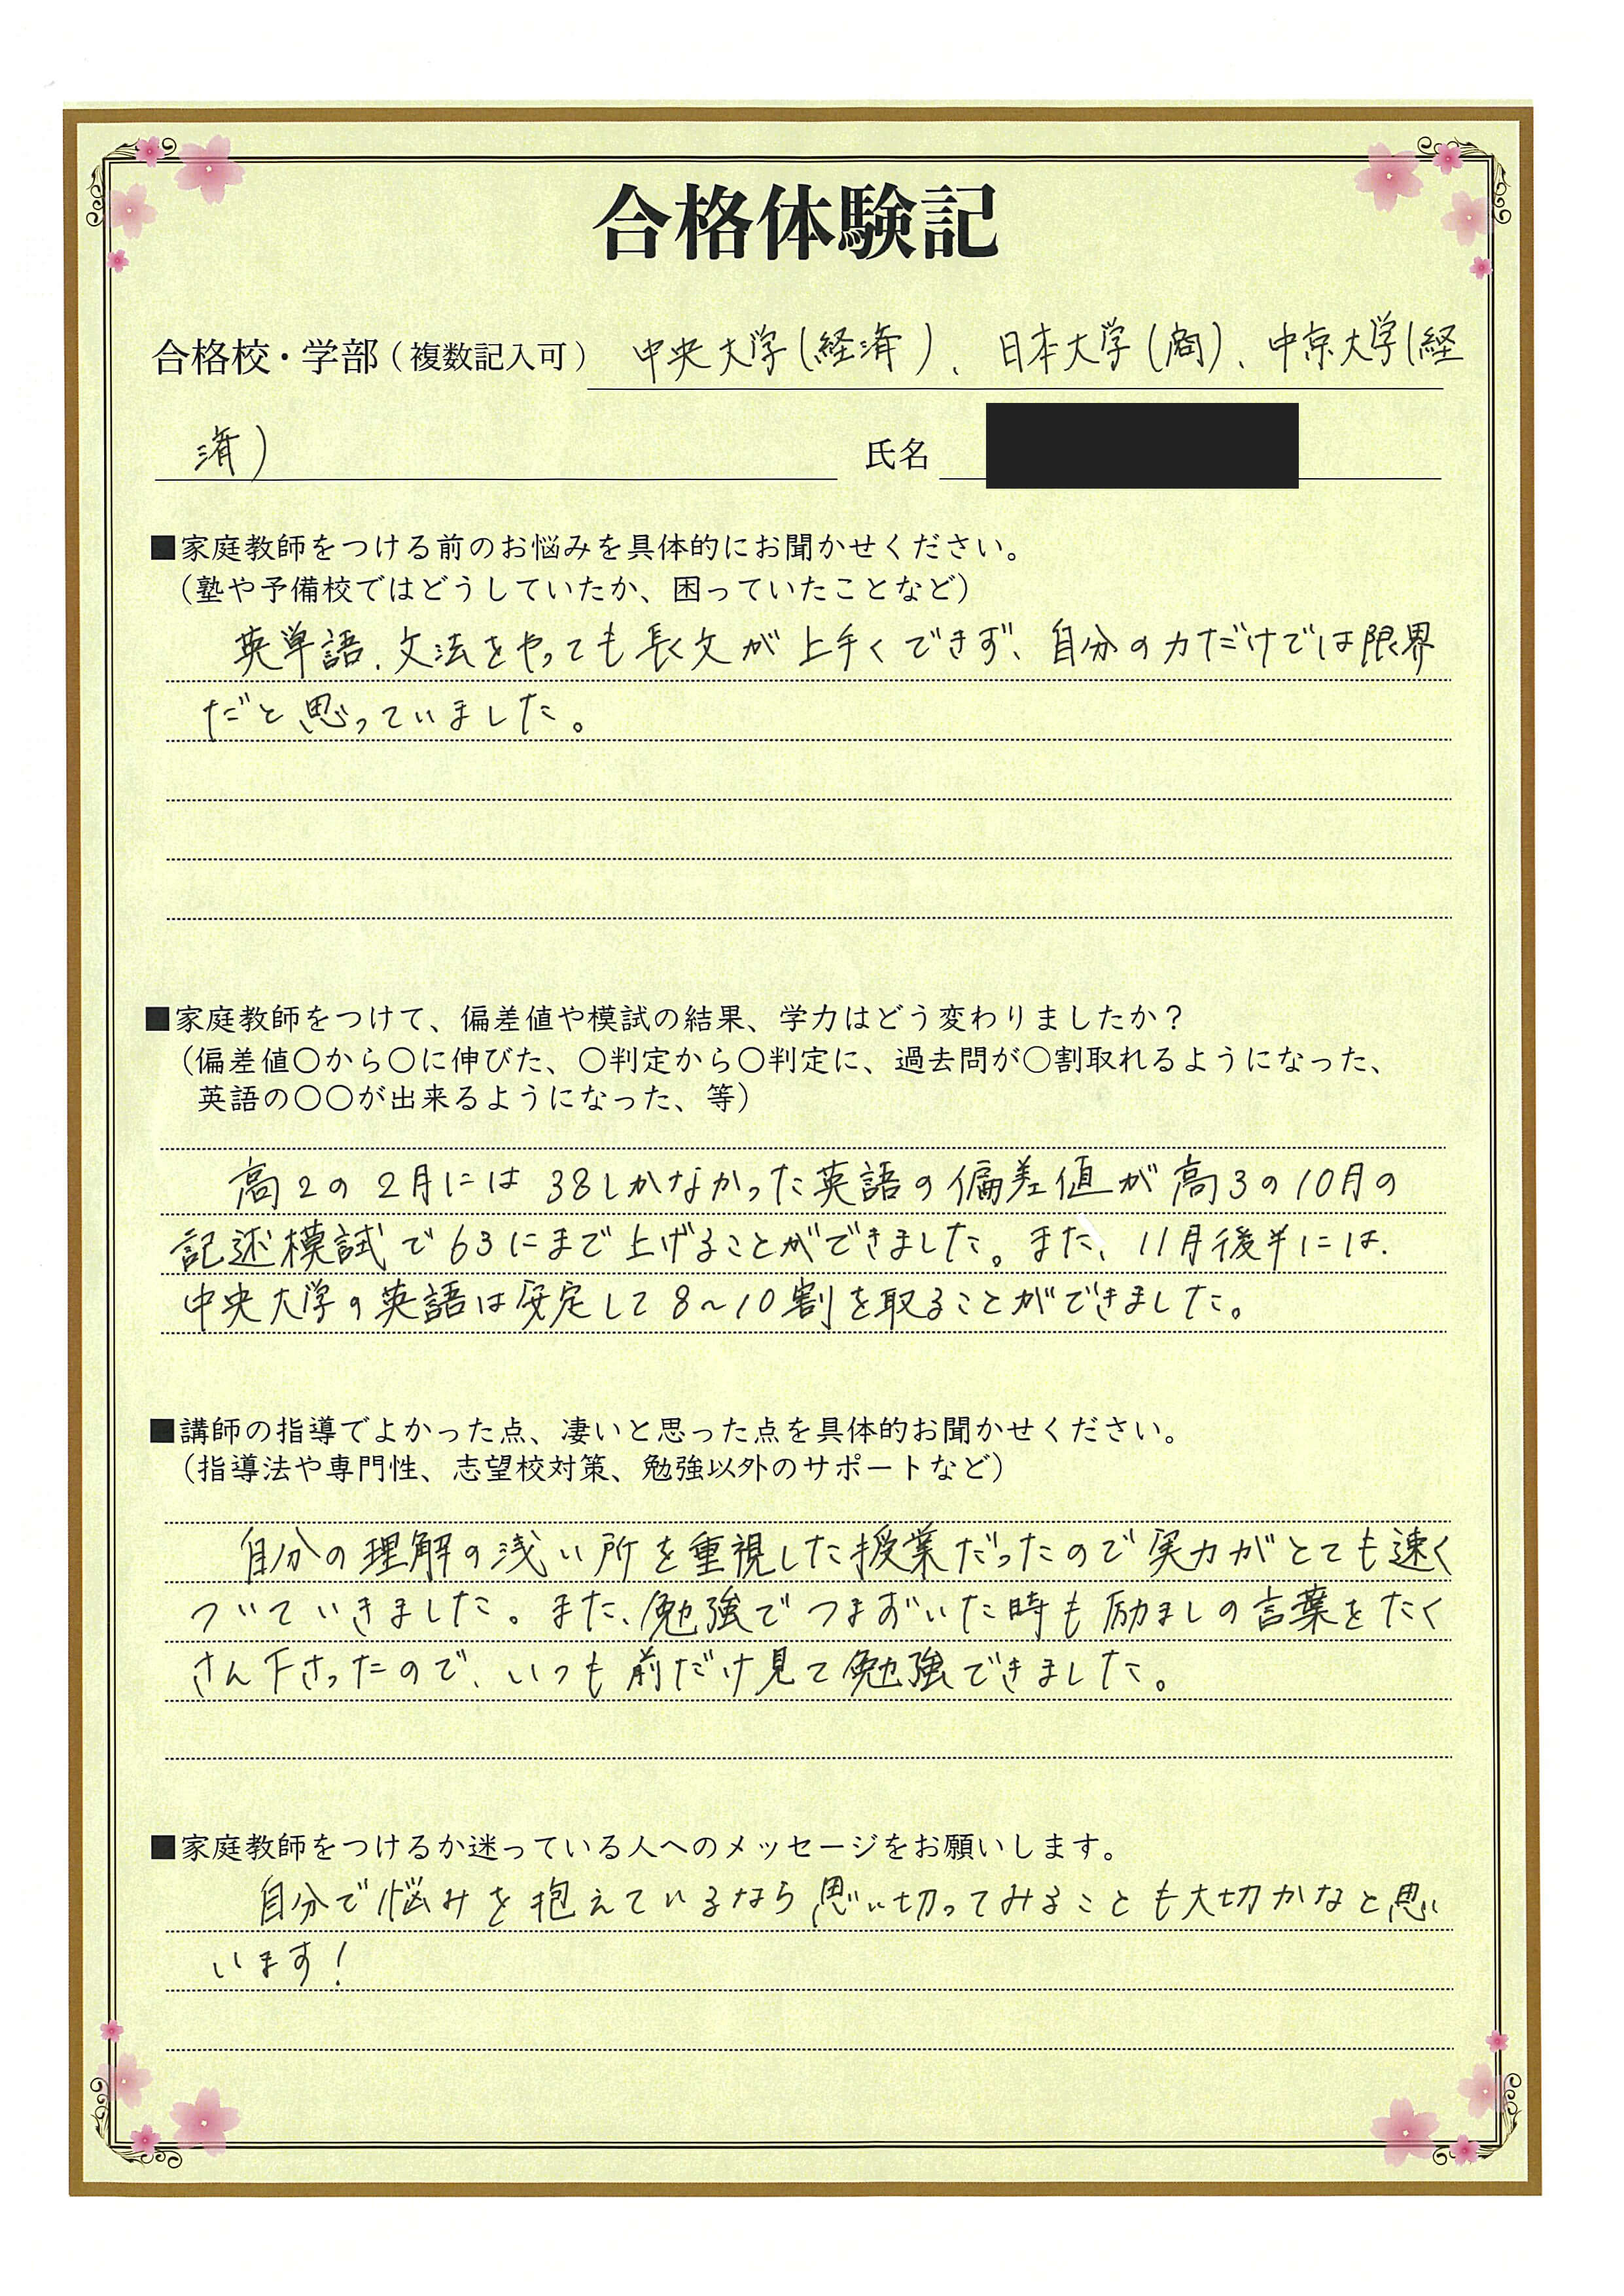 合格体験記
合格校・学部(複数記入可) 中央大学(経済)、日本大学(商)、中京大学(経
済) 氏名
■家庭教師をつける前のお悩みを具体的にお聞かせください。
(塾や予備校ではどうしていたか、困っていたことなど)
英単語、文法をやっても長文が上手くできず、自分の力だけでは限界
だと思っていました。
■家庭教師をつけて、偏差値や模試の結果、学力はどう変わりましたか?
(偏差値〇から〇に伸びた、〇判定から〇判定に、過去問が〇割取れるようになった、
英語の〇〇が出来るようになった、等)
高2の2月には38しかなかった英語の偏差値が高3の10月の
記述模試で63にまで上げることができました。また、11月後半には、
中央大学の英語は安定して8~10割を取ることができました。
■講師の指導でよかった点、凄いと思った点を具体的お聞かせください。
(指導法や専門性、志望校対策、勉強以外のサポートなど)
自分の理解の浅い所を重視した授業だったので実力がとても速く
ついていきました。また、勉強でつまずいた時も励ましの言葉をたく
さん下さったので、いつも前だけ見て勉強できました。
■家庭教師をつけるか迷っている人へのメッセージをお願いします。
自分で悩みを抱えているなら思い切ってみることも大切かなと思い
います!